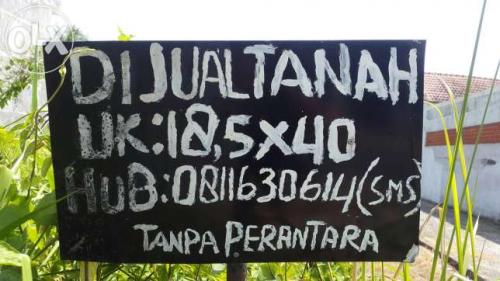 OLX
DIJUAL TANAH
UK:18,5X40
HUB:0811630614(SMS)
TANPA PERANTARA